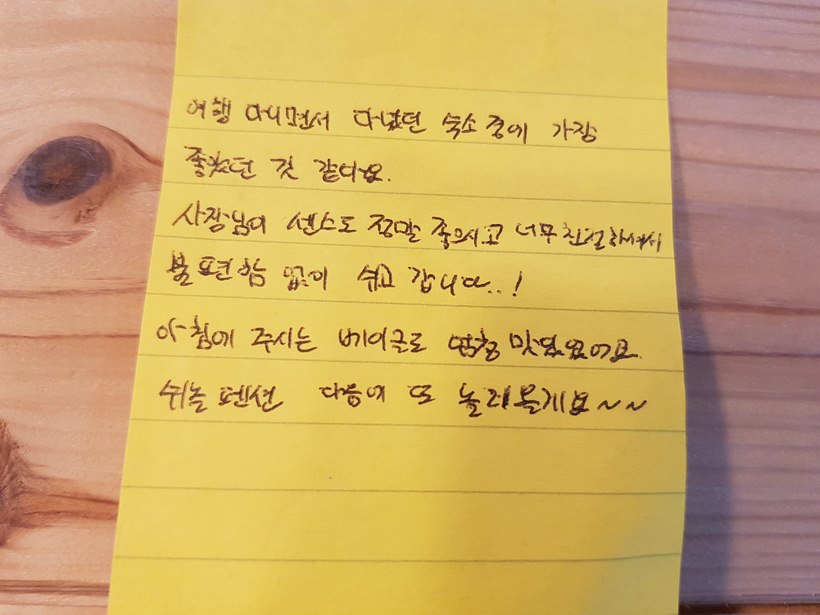 여행 다니면서 다녔던 숙소 중에 가장
좋았던 것 같다요.
사장님이 센스도 정말 좋으시고 너무 친절하셔서
불편함 없이 쉬고 갑니다..!
아침에 주시는 베이글도 엄청 맛있었어요.
쉬놀 펜션 다음에 또 놀러올게요~~